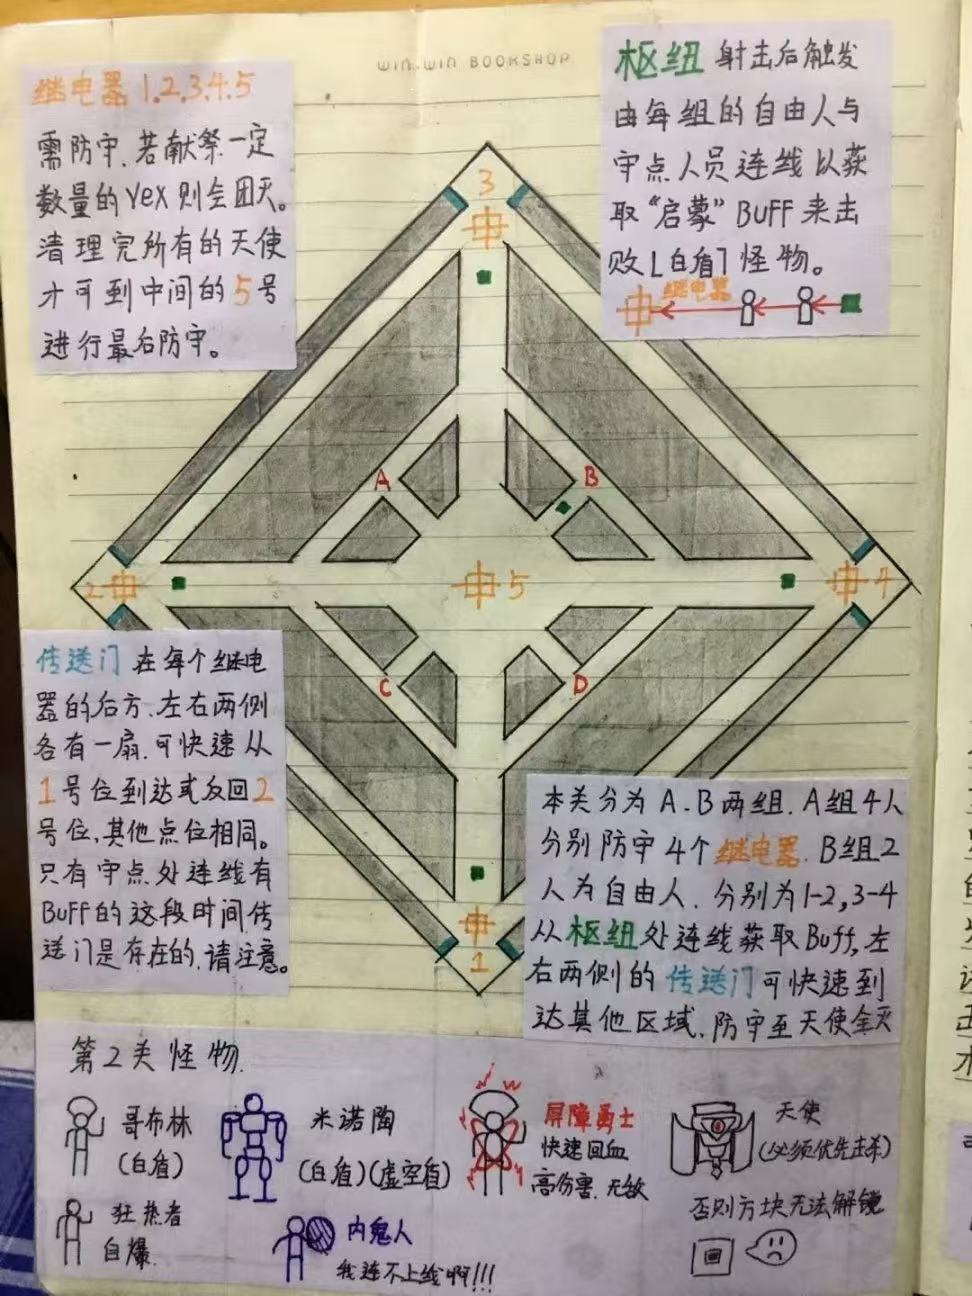 WIN.WIN BOOKSHOP
继电器1.2.3.4.5
需防守.若献祭一定
数量的Vex则会团灭。
清理完所有的天使
才可到中间的5号
进行最后防守。
枢纽 射击后触发
由每组的自由人与
守点人员连线以获
取“启蒙”BUFF来击
败[白盾]怪物。
继电器
3
A
B
2
5
4
C
D
1
传送门 在每个继电
器的后方.左右两侧
各有一扇.可快速从
1号位到达或反回2
号位,其他点位相同。
只有守点处连线有
BUFF的这段时间传
送门是存在的,请注意。
本关分为A.B两组.A组4人
分别防守4个继电器.B组2
人为自由人.分别为1-2,3-4
从枢纽处连线获取Buff,左
右两侧的传送门可快速到
达其他区域.防守至天使全灭
第2关怪物.
哥布林
(白盾)
米诺陶
(白盾)(虚空盾)
屏障勇士
快速回血
高伤害.无敌
天使
(必须优先击杀)
否则方块无法解锁
狂热者
自爆.
内鬼人
我连不上线啊!!!